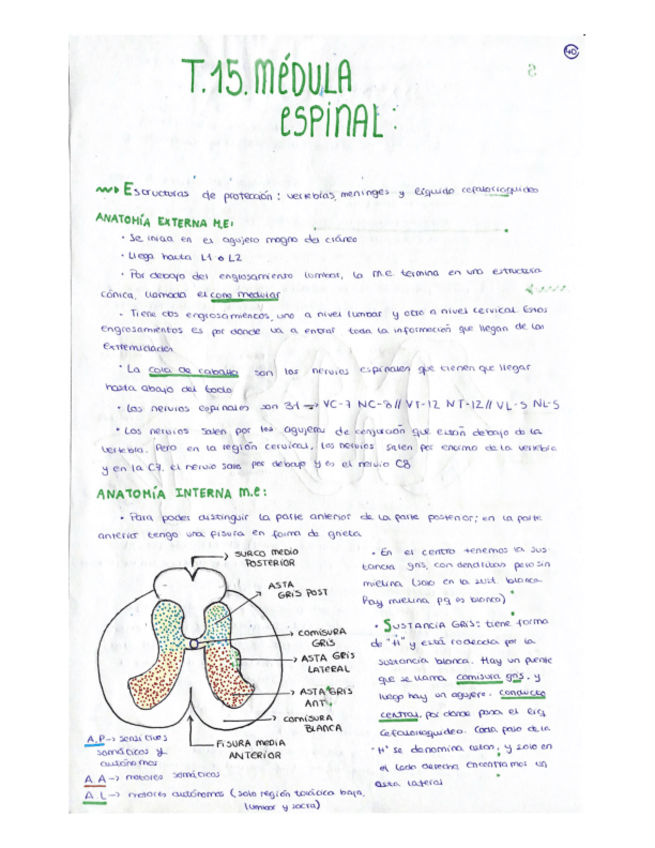 40
T.15. MÉDULA
ESPINAL:
Estructuras de protección: vertebras, meninges y líquido cefalorraquídeo
ANATOMÍA EXTERNA M.E:
· Se inicia en el agujero magno del cráneo
· Llega hasta L1 o L2
· Por debajo del engrosamiento lumbar, la m.e termina en una estructura
cónica, llamada el cono medular
· Tiene dos engrosamientos, uno a nivel lumbar y otro a nivel cervical. Estos
engrosamientos es por donde va a entrar toda la información que llegan de las
extremidades
· La cola de caballo son los nervios espinales que tienen que llegar
hasta abajo del todo
· Los nervios espinales son 31 → VC-7 NC-8 // VT-12 NT-12 // VL-5 NL-5
· Los nervios salen por los agujeros de conjunción que están debajo de la
vertebra. Pero en la región cervical, los nervios salen por encima de la vertebra
y en la C7, el nervio sale por debajo y es el nervio C8
ANATOMÍA INTERNA m.e:
· Para poder distinguir la parte anterior de la parte posterior; en la parte
anterior tengo una fisura en forma de grieta
SURCO MEDIO
POSTERIOR
ASTA
GRIS POST
COMISURA
GRIS
ASTA GRIS
LATERAL
ASTA GRIS
ANT
COMISURA
BLANCA
FISURA MEDIA
ANTERIOR
A.P → sensitivos
somáticos y
autónomos
A.A → motores somáticos
A L → motores autónomos (solo región torácica baja,
lumbar y sacra)
· En el centro tenemos la sus-
tancia gris, con dendritas pero sin
mielina (solo en la sust. blanca
hay mielina pq es blanca)
· SUSTANCIA GRIS: tiene forma
de "H" y está rodeada por la
sustancia blanca. Hay un puente
que se llama comisura gris, y
luego hay un agujero, conducto
central, por donde pasa el líq
cefalorraquídeo. Cada palo de la
"H" se denomina astas, y solo en
el lado derecho encontramos un
asta lateral